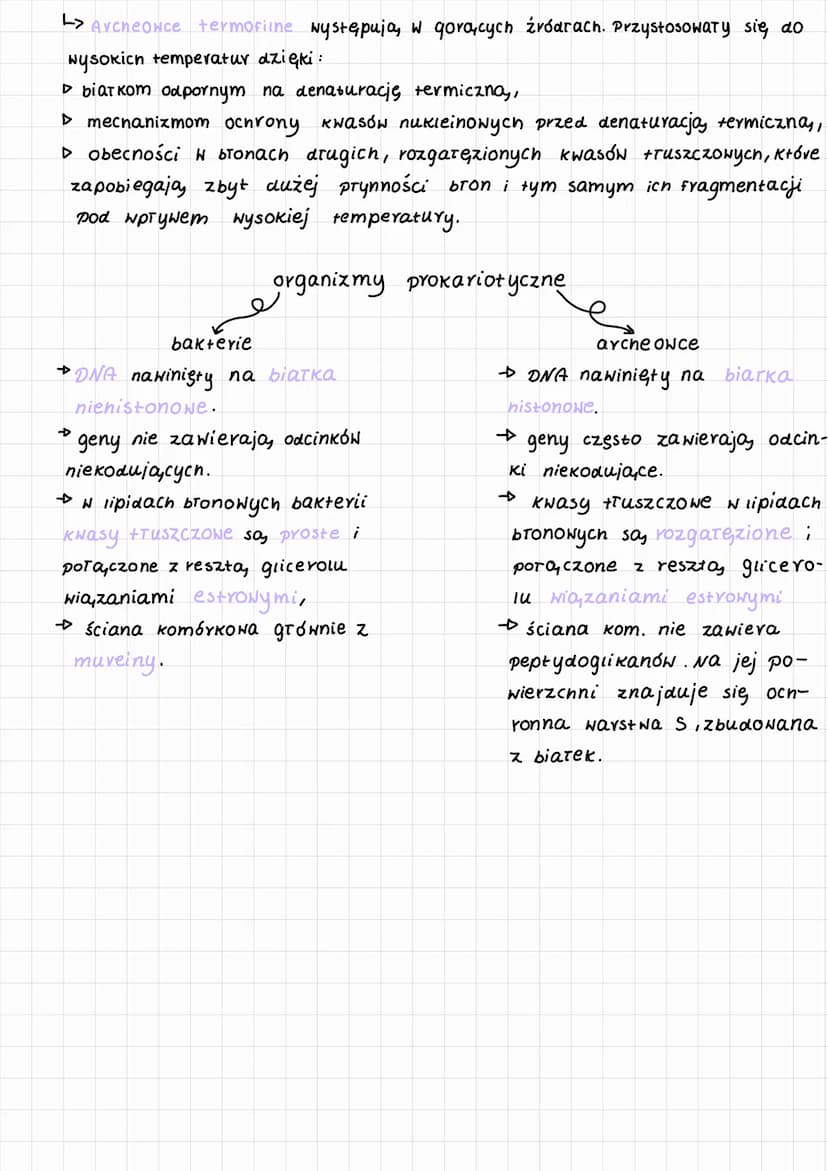 ↳ Archeowce termofilne występują w gorących źródłach. Przystosowały się do
wysokich temperatur dzięki:
▷ białkom odpornym na denaturację termiczną,
▷ mechanizmom ochrony kwasów nukleinowych przed denaturacją termiczną,
▷ obecności w błonach długich, rozgałęzionych kwasów tłuszczowych, które
zapobiegają zbyt dużej płynności błon i tym samym ich fragmentacji
pod wpływem wysokiej temperatury.
organizmy prokariotyczne
bakterie
→ DNA nawinięty na białka
niehistonowe.
→ geny nie zawierają odcinków
niekodujących.
→ w lipidach błonowych bakterii
kwasy tłuszczowe są proste i
połączone z resztą glicerolu
wiązaniami estrowymi,
→ ściana komórkowa głównie z
mureiny.
archeowce
→ DNA nawinięty na białka
histonowe.
→ geny często zawierają odcin-
ki niekodujące.
→ kwasy tłuszczowe w lipidach
błonowych są rozgałęzione i
połączone z resztą glicero-
lu wiązaniami estrowymi
→ ściana kom. nie zawiera
peptydoglikanów. Na jej po-
wierzchni znajduje się och-
ronna warstwa S, zbudowana
z białek.